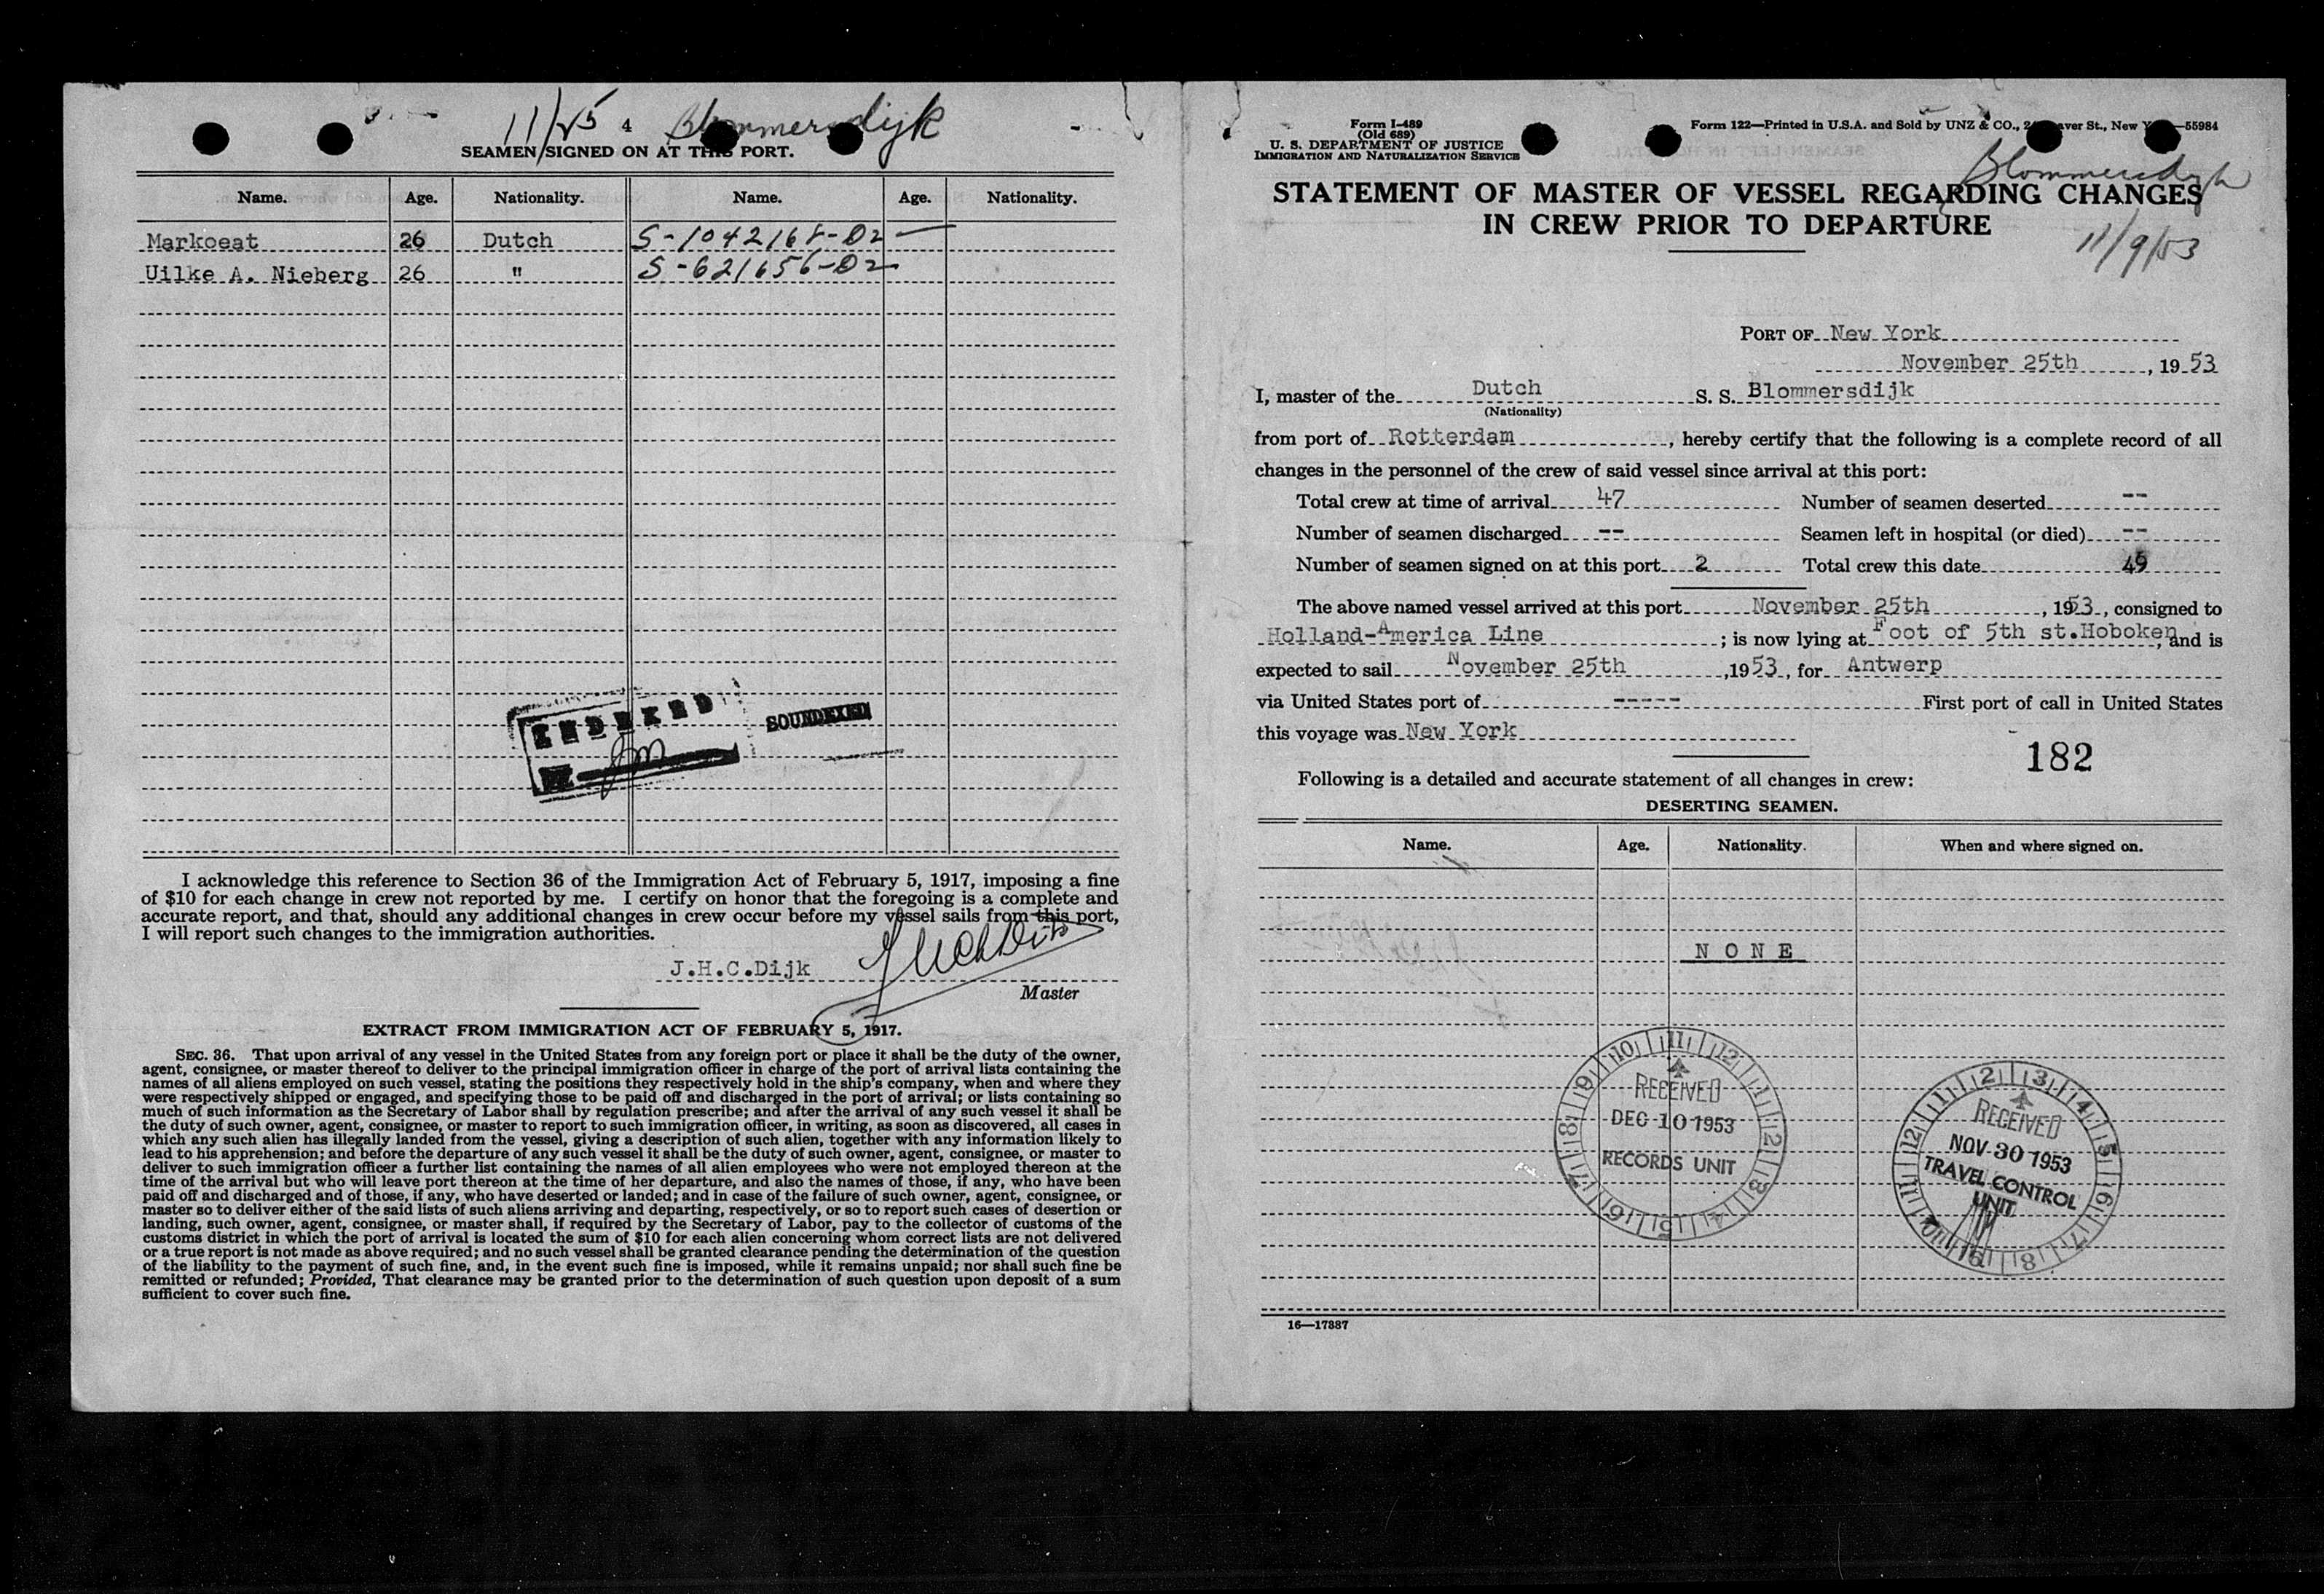 11/25 4 Blommersdijk
SEAMEN SIGNED ON AT THIS PORT.
Name. Age. Nationality. Name. Age. Nationality.
Markoeat 26 Dutch S-1042168-D2 —
Uilke A. Nieberg 26 " S-621656-D2
INDEXED
SOUNDEXED
I acknowledge this reference to Section 36 of the Immigration Act of February 5, 1917, imposing a fine
of $10 for each change in crew not reported by me. I certify on honor that the foregoing is a complete and
accurate report, and that, should any additional changes in crew occur before my vessel sails from this port,
I will report such changes to the immigration authorities.
J.H.C.Dijk
Master
EXTRACT FROM IMMIGRATION ACT OF FEBRUARY 5, 1917.
SEC. 36. That upon arrival of any vessel in the United States from any foreign port or place it shall be the duty of the owner,
agent, consignee, or master thereof to deliver to the principal immigration officer in charge of the port of arrival lists containing the
names of all aliens employed on such vessel, stating the positions they respectively hold in the ship's company, when and where they
were respectively shipped or engaged, and specifying those to be paid off and discharged in the port of arrival; or lists containing so
much of such information as the Secretary of Labor shall by regulation prescribe; and after the arrival of any such vessel it shall be
the duty of such owner, agent, consignee, or master to report to such immigration officer, in writing, as soon as discovered, all cases in
which any such alien has illegally landed from the vessel, giving a description of such alien, together with any information likely to
lead to his apprehension; and before the departure of any such vessel it shall be the duty of such owner, agent, consignee, or master to
deliver to such immigration officer a further list containing the names of all alien employees who were not employed thereon at the
time of the arrival but who will leave port thereon at the time of her departure, and also the names of those, if any, who have been
paid off and discharged and of those, if any, who have deserted or landed; and in case of the failure of such owner, agent, consignee, or
master so to deliver either of the said lists of such aliens arriving and departing, respectively, or so to report such cases of desertion or
landing, such owner, agent, consignee, or master shall, if required by the Secretary of Labor, pay to the collector of customs of the
customs district in which the port of arrival is located the sum of $10 for each alien concerning whom correct lists are not delivered
or a true report is not made as above required; and no such vessel shall be granted clearance pending the determination of the question
of the liability to the payment of such fine, and, in the event such fine is imposed, while it remains unpaid; nor shall such fine be
remitted or refunded; Provided, That clearance may be granted prior to the determination of such question upon deposit of a sum
sufficient to cover such fine.
Form I-489
(Old 689)
U. S. DEPARTMENT OF JUSTICE
IMMIGRATION AND NATURALIZATION SERVICE
Form 122—Printed in U.S.A. and Sold by UNZ & CO., St., New 55984
Blommersdijk
STATEMENT OF MASTER OF VESSEL REGARDING CHANGES
IN CREW PRIOR TO DEPARTURE
11/9/53
PORT OF New York
November 25th, 1953
I, master of the Dutch S. S. Blommersdijk
(Nationality)
from port of Rotterdam, hereby certify that the following is a complete record of all
changes in the personnel of the crew of said vessel since arrival at this port:
Total crew at time of arrival 47 Number of seamen deserted --
Number of seamen discharged -- Seamen left in hospital (or died) --
Number of seamen signed on at this port 2 Total crew this date 49
The above named vessel arrived at this port November 25th, 1953, consigned to
Holland-America Line; is now lying at Foot of 5th st.Hoboken, and is
expected to sail November 25th, 1953, for Antwerp
via United States port of ----- First port of call in United States
this voyage was New York
182
Following is a detailed and accurate statement of all changes in crew:
DESERTING SEAMEN.
Name. Age. Nationality. When and where signed on.
NONE
10 11 12 1 2 3 4 5 6 7 8 9
RECEIVED
DEC 10 1953
RECORDS UNIT
RECEIVED
NOV 30 1953
TRAVEL CONTROL
UNIT
16—17887